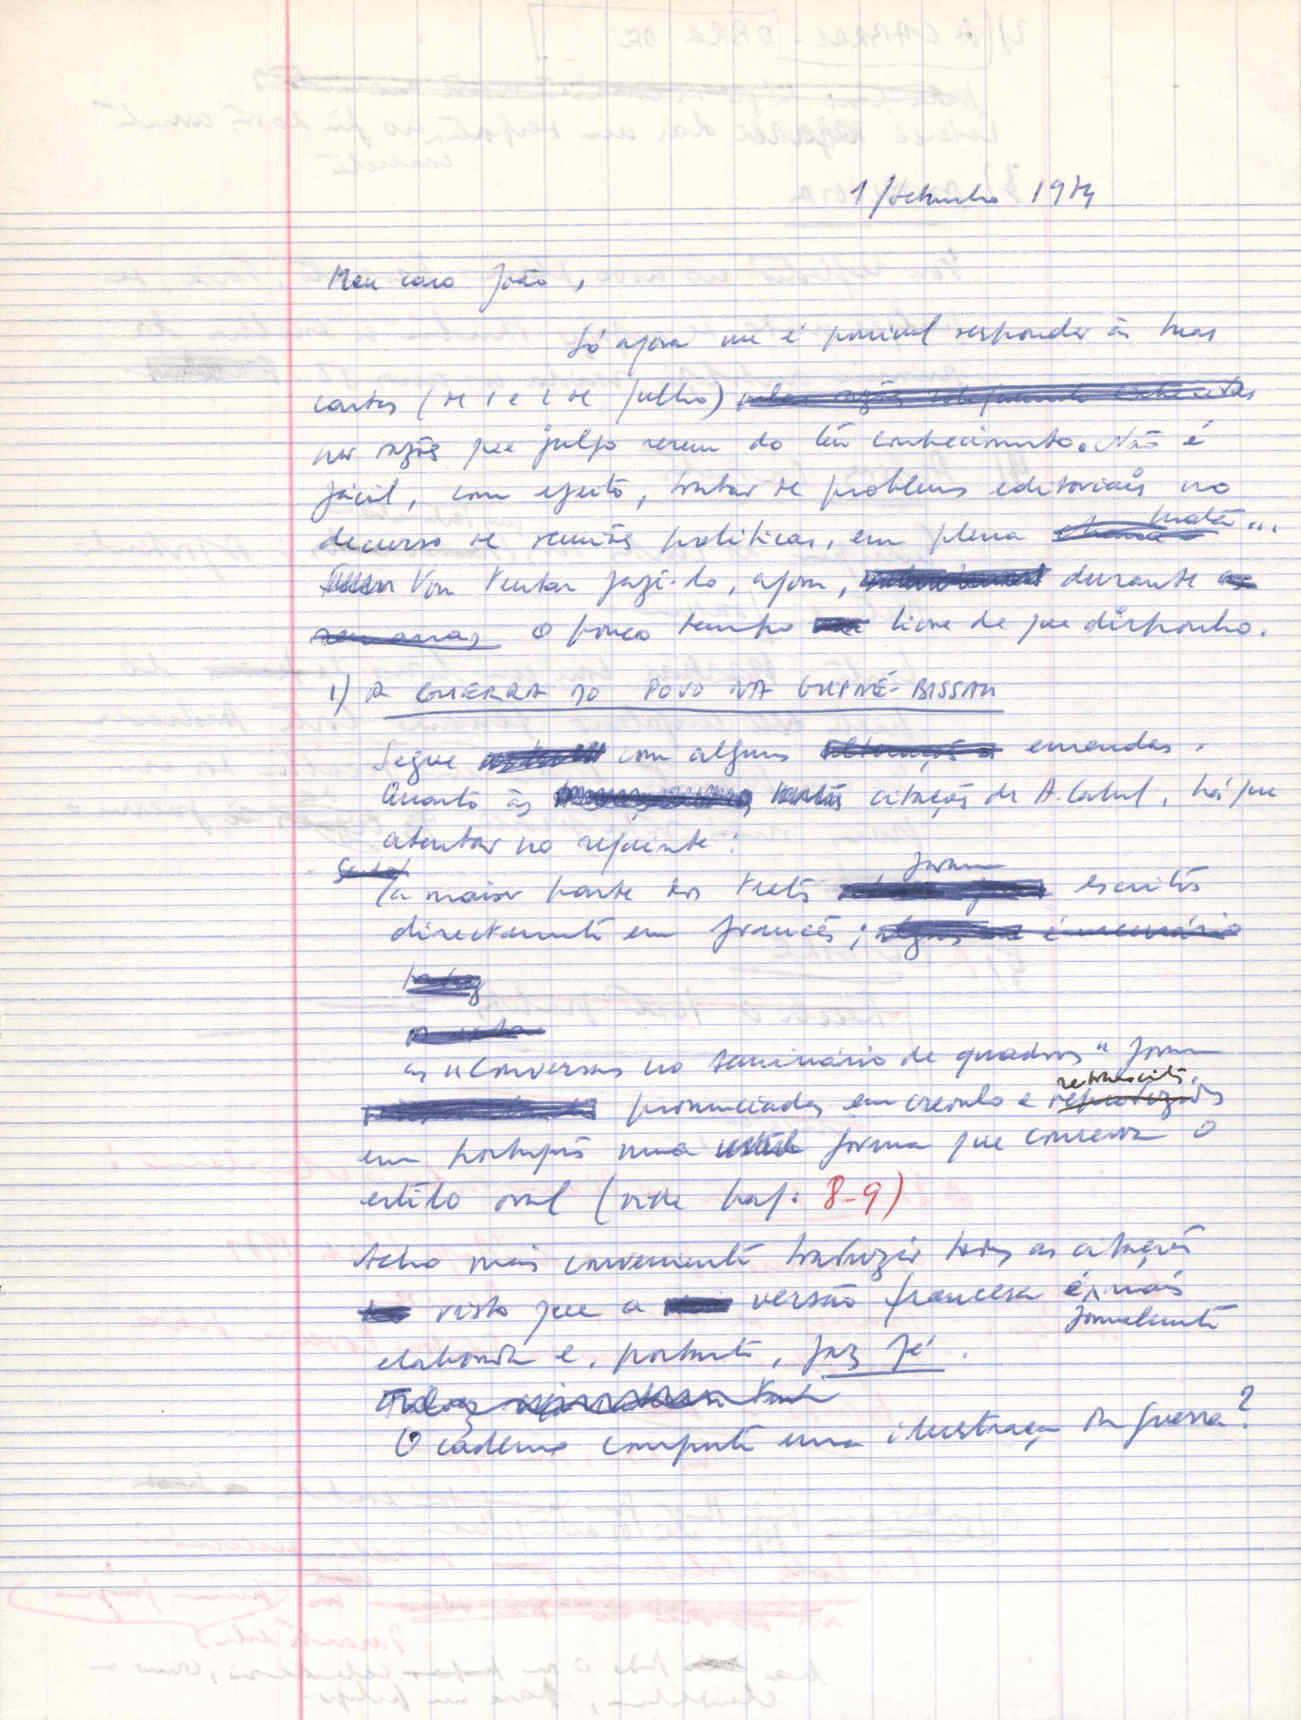 1/Setembro 1974
Meu caro João,
Só agora me é possível responder às tuas
cartas (de 1 e 2 de Julho)
por razões que julgo serem do teu conhecimento. Não é
fácil, com efeito, tratar de problemas editoriais no
decurso de reuniões políticas, em plena mata...
Vou tentar fazê-lo, agora, durante
o pouco tempo livre de que disponho.
1) A GUERRA DO POVO NA GUINÉ-BISSAU
Segue com algumas emendas.
Quanto às citações de A. Cabral, há que
atentar no seguinte:
foram
a maior parte dos textos escritos
directamente em francês;
as "Conversas no seminário de quadros" foram
retranscritas
pronunciadas em crioulo e
em português numa forma que conserva o
estilo oral (vide pag. 8-9)
Acho mais conveniente traduzir todas as citações
visto que a versão francesa é mais
formalmente
elaborada e, portanto, faz fé.
O caderno comporta uma ilustração da guerra?